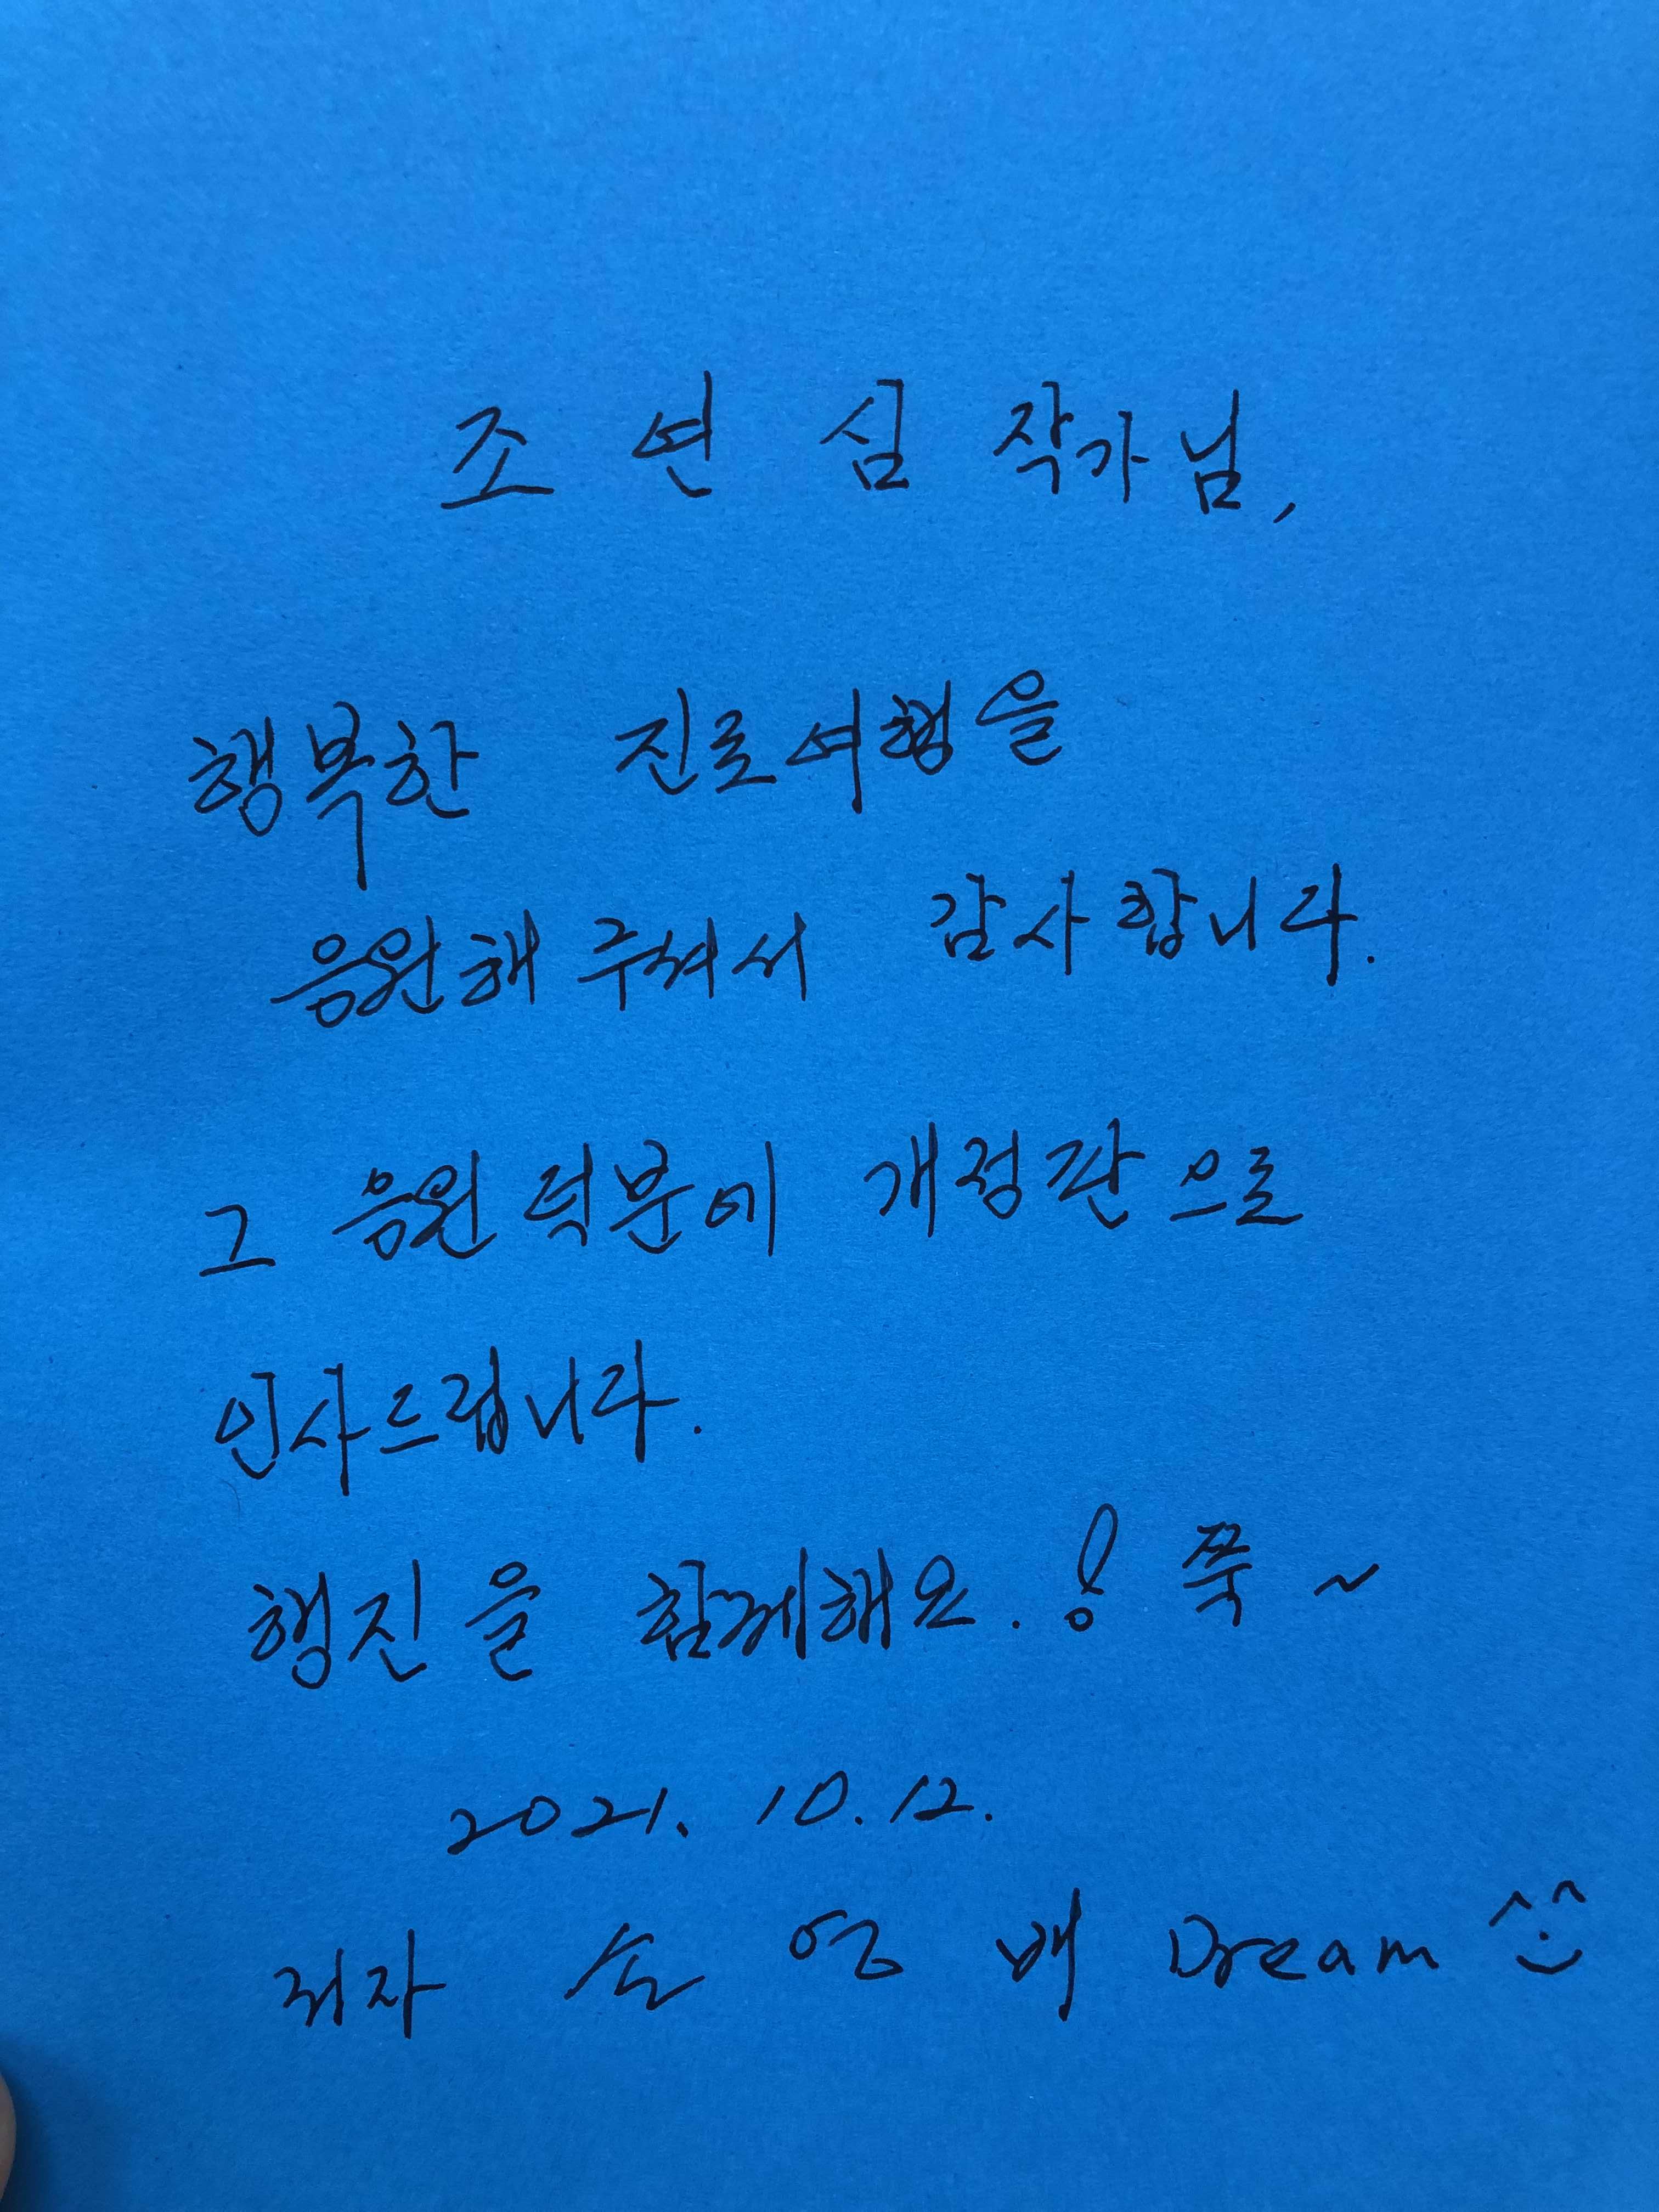 조 연 심 작가님,
행복한 진로여행을
응원해 주셔서 감사합니다.
그 응원 덕분에 개정판으로
인사드립니다.
행진을 함께해요.! 쭉~
2021. 10. 12.
저자 손 영 배 Dream ^^